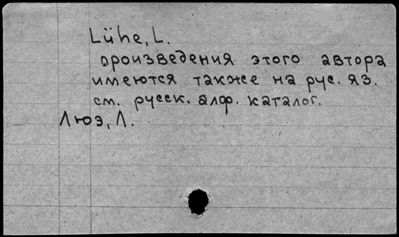 Lühe, L.
произведения этого автора
имеются также на рус. яз.
см. русск. алф. каталог.
Люэ, Л.